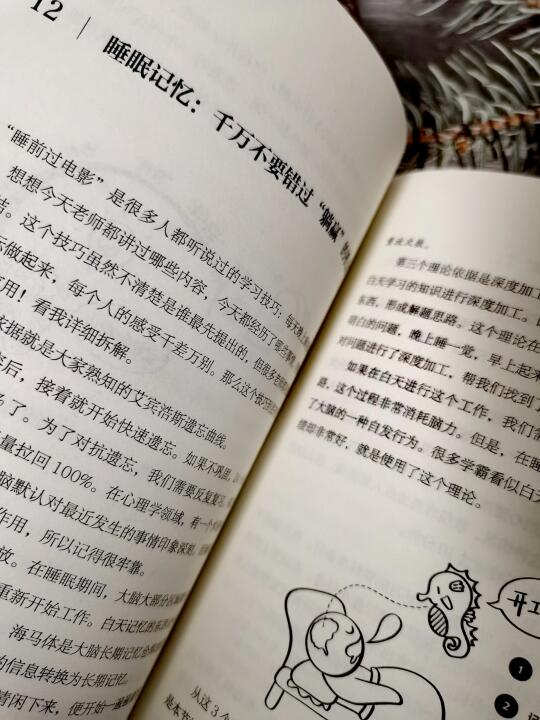 12
睡眠记忆：千万不要错过“躺赢”
“睡前过电影”是很多人都听说过的学习技巧，每天晚上
想想今天老师都讲过哪些内容，今天都经历了哪些
结。这个技巧虽然不清楚是谁最先提出的，但很多
做起来，每个人的感受千差万别。那么这个技巧
用！看我详细拆解。
依据就是大家熟知的艾宾浩斯遗忘曲线。
后，接着就开始快速遗忘。如果不巩固，
了。为了对抗遗忘，我们需要反复复习，
量拉回100%。在心理学领域，有一个
脑默认对最近发生的事情印象深刻，
作用，所以记得很牢靠。
放。在睡眠期间，大脑大部分区域
重新开始工作。白天记忆的
海马体是大脑长期记忆
的信息转换为长期记忆。
情闲下来，便开始一
第三个理论依据是深度加工
白天学习的知识进行深度加工。
东西，形成解题思路。这个理论在
明白的问题，晚上睡一觉，早上起来
对问题进行了深度加工，帮我们找到了
如果在白天进行这个工作，我们需
路，这个过程非常消耗脑力。但是，在睡
了大脑的一种自发行为。很多学霸看似白天
绩却非常好，就是使用了这个理论。
开工
1
2
从这3个